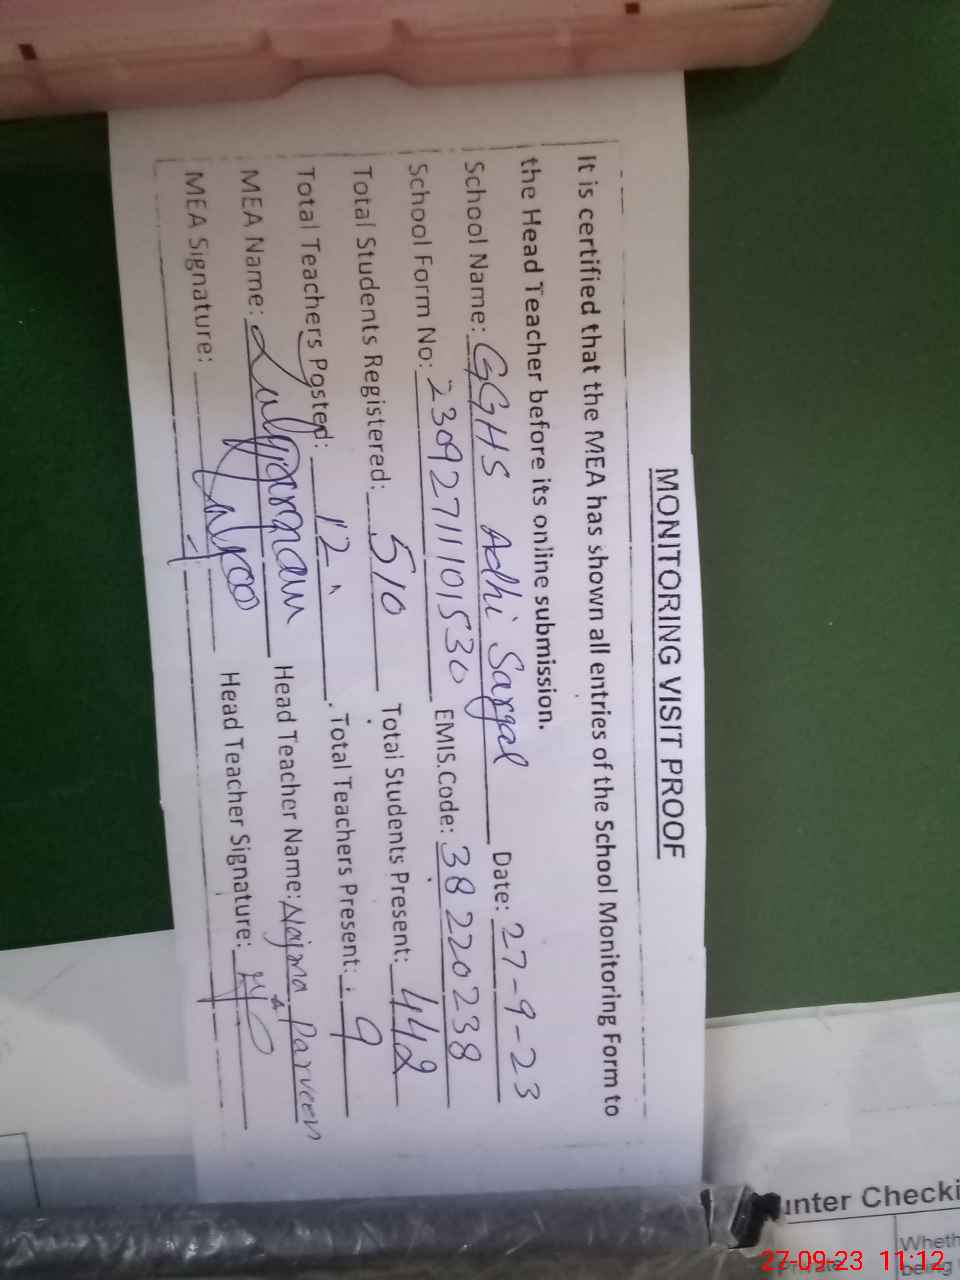 MONITORING VISIT PROOF
It is certified that the MEA has shown all entries of the School Monitoring Form to
the Head Teacher before its online submission.
School Name: GGHS Adhi Sargal Date: 27-9-23
School Form No: 23092711101530 EMIS.Code: 38220238
Total Students Registered: 510 Total Students Present: 442
Total Teachers Posted: 12 Total Teachers Present: 9
MEA Name: Head Teacher Name: Najma Parveen
MEA Signature: Head Teacher Signature:
unter Checki
Wheth
being
27-09-23 11:12